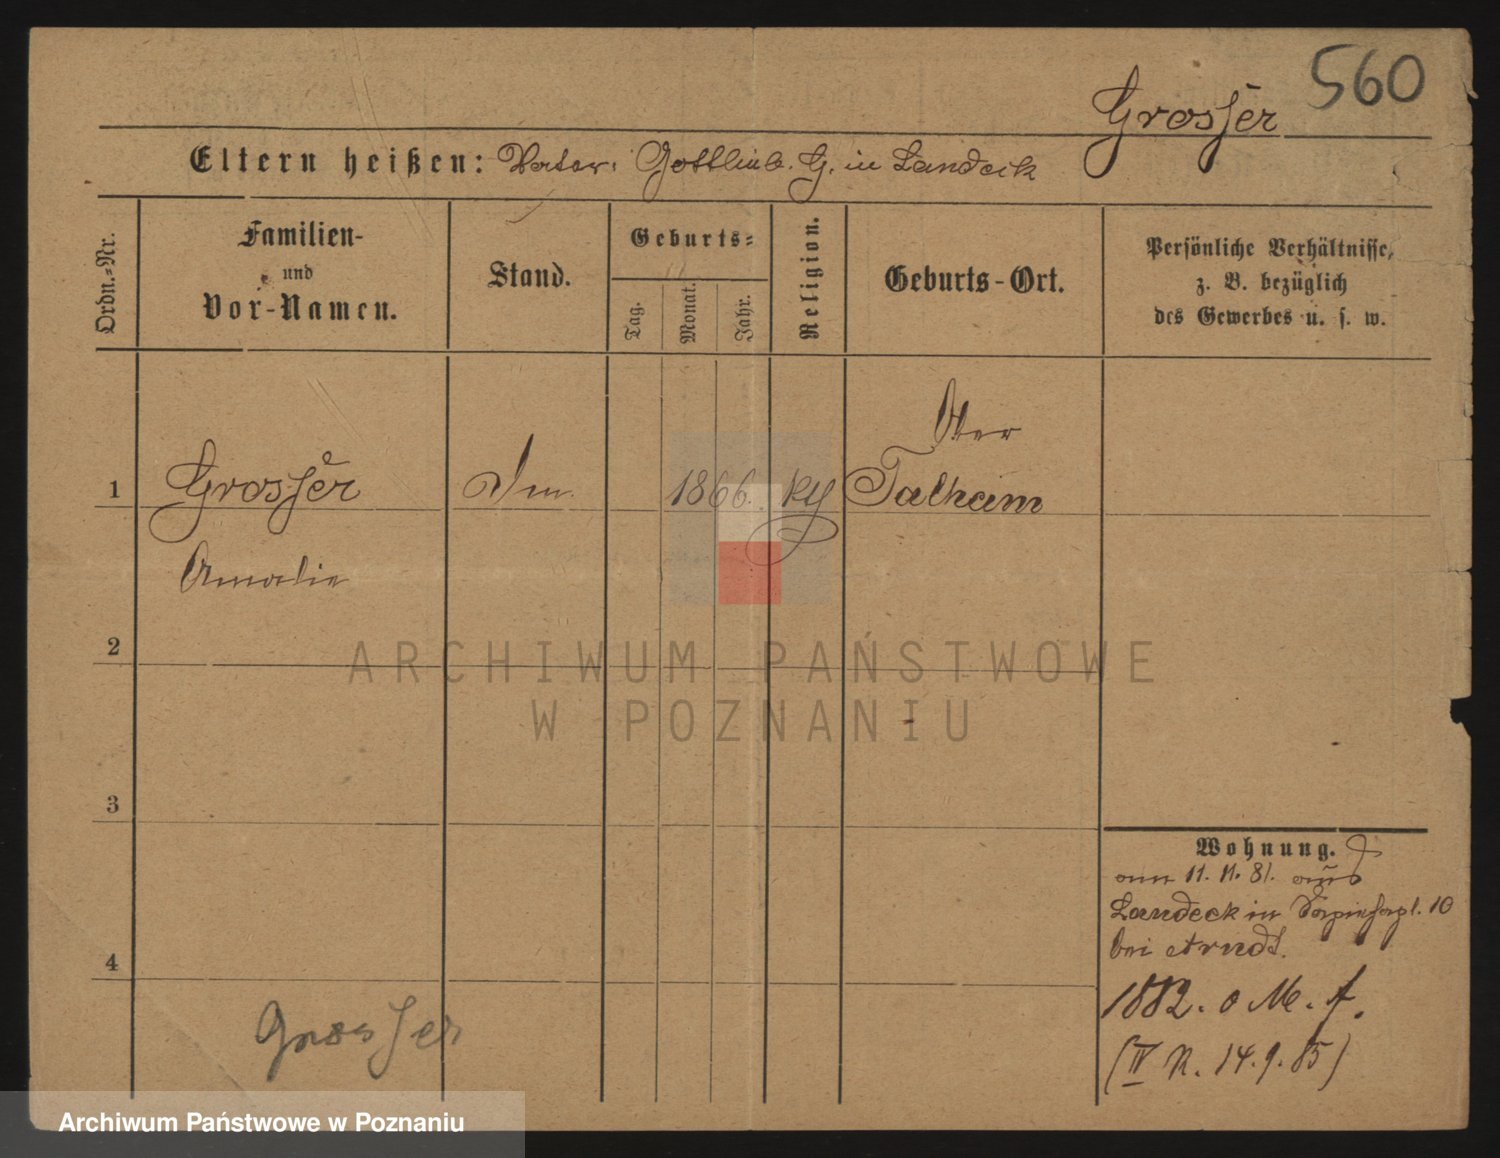 560
Grosser
Eltern heißen: Vater: Gottlieb. G. in Landeck
Ordn.-Nr.
Familien-
und
Vor-Namen.
Stand.
Geburts-
Tag.
Monat.
Jahr.
Religion.
Geburts-Ort.
Persönliche Verhältnisse,
z. B. bezüglich
des Gewerbes u. s. w.
Ober
1 Grosser 1866. Talheim
Amalie
2
3
4
Wohnung.
am 11. 11. 81. aus
Landeck in 10
bei Arndt.
1882. o M. f.
(IV R. 14. 9. 85)
Grosser
ARCHIWUM PAŃSTWOWE
W POZNANIU
Archiwum Państwowe w Poznaniu